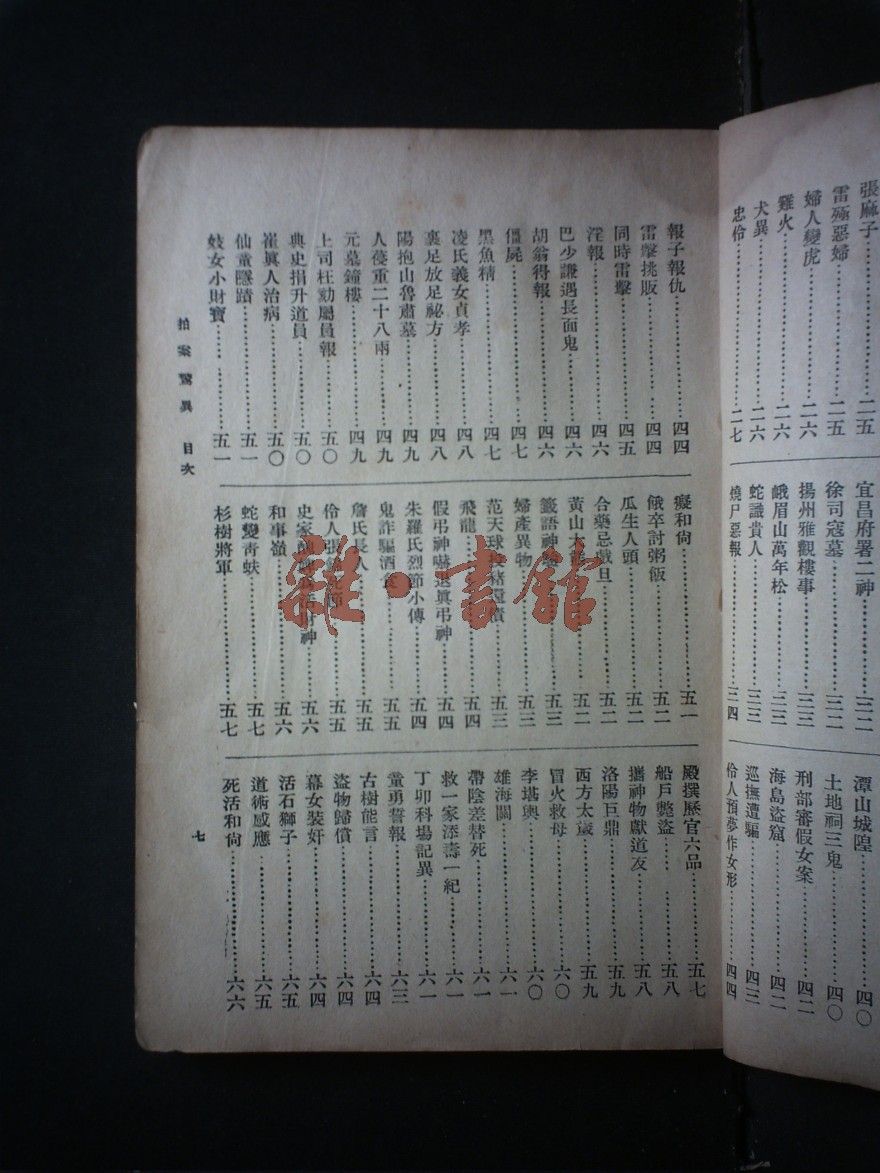 張麻子……二五
雷殛惡婦……二五
婦人變虎……二六
雞火……二六
犬異……二六
忠伶……二七
宜昌府署二神……三二
徐司寇墓……三二
揚州雅觀樓事……三三
峨眉山萬年松……三三
蛇識貴人……三三
燒尸惡報……三四
潭山城隍……四〇
土地祠三鬼……四〇
刑部審假女案……四二
海島盜窟……四二
巡撫遭騙……四三
伶人預夢作女形……四四
報子報仇……四四
雷擊挑販……四四
同時雷擊……四五
淫報……四六
巴少謙遇長面鬼……四六
胡翁得報……四六
僵屍……四七
黑魚精……四七
凌氏義女貞孝……四八
裹足放足祕方……四八
陽抱山魯肅墓……四九
人薓重二十八兩……四九
元墓鐘樓……四九
上司枉劾屬員報……五〇
典史捐升道員……五〇
崔眞人治病……五〇
仙童隱蹟……五一
妓女小財寶……五一
癡和尙……五一
餓卒討粥飯……五二
瓜生人頭……五二
合藥忌戲旦……五二
黃山大……五二
籤語神……五三
婦產異物……五三
范天球投豬還債……五三
飛龍……五四
假弔神嚇退眞弔神……五四
朱羅氏烈節小傳……五四
鬼詐騙酒食……五五
詹氏長人……五五
伶人張……節……五五
史家……財神……五六
和事嶺……五六
蛇變靑蚨……五七
杉樹將軍……五七
殿撰歷官六品……五七
船戶斃盜……五八
攜神物獻道友……五八
洛陽巨鼎……五九
西方太歲……五九
冒火救母……六〇
李堪輿……六〇
雄海關……六一
帶陰差替死……六一
救一家添壽一紀……六一
丁卯科場記異……六一
童勇誓報……六三
古樹能言……六四
盜物歸償……六四
幕女裝奸……六四
活石獅子……六五
道術感應……六五
死活和尙……六六
拍案驚異 目次
七
雜·書館